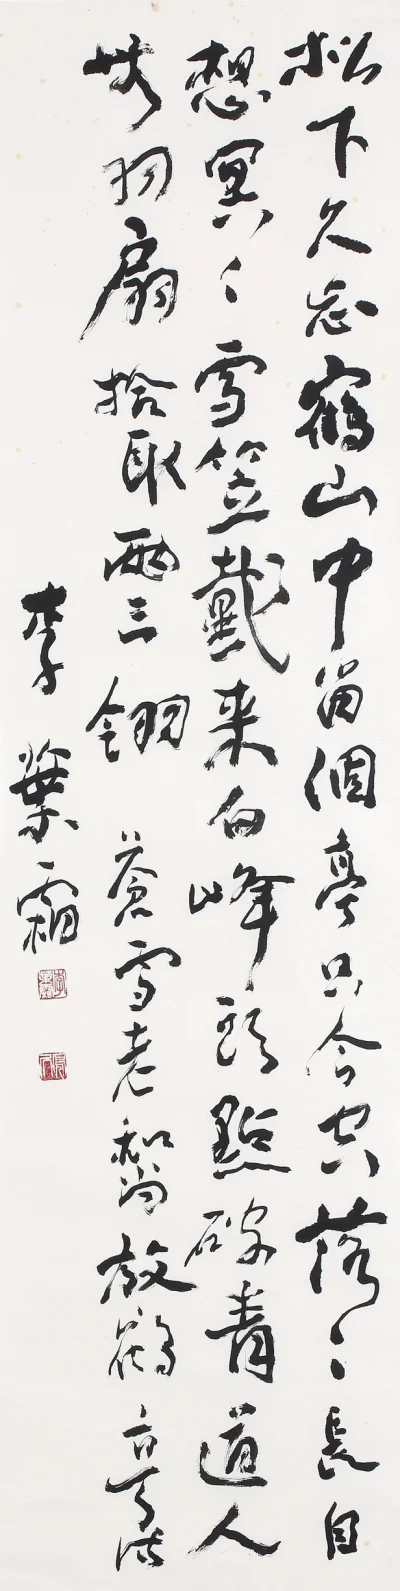 松下久忘鶴山中留個亭只今空落〻長自
想冥〻雪笠戴来白峰頭點破青道人
無羽扇拾取兩三翎 蒼雪老和尚放鶴亭詩
李葉霜